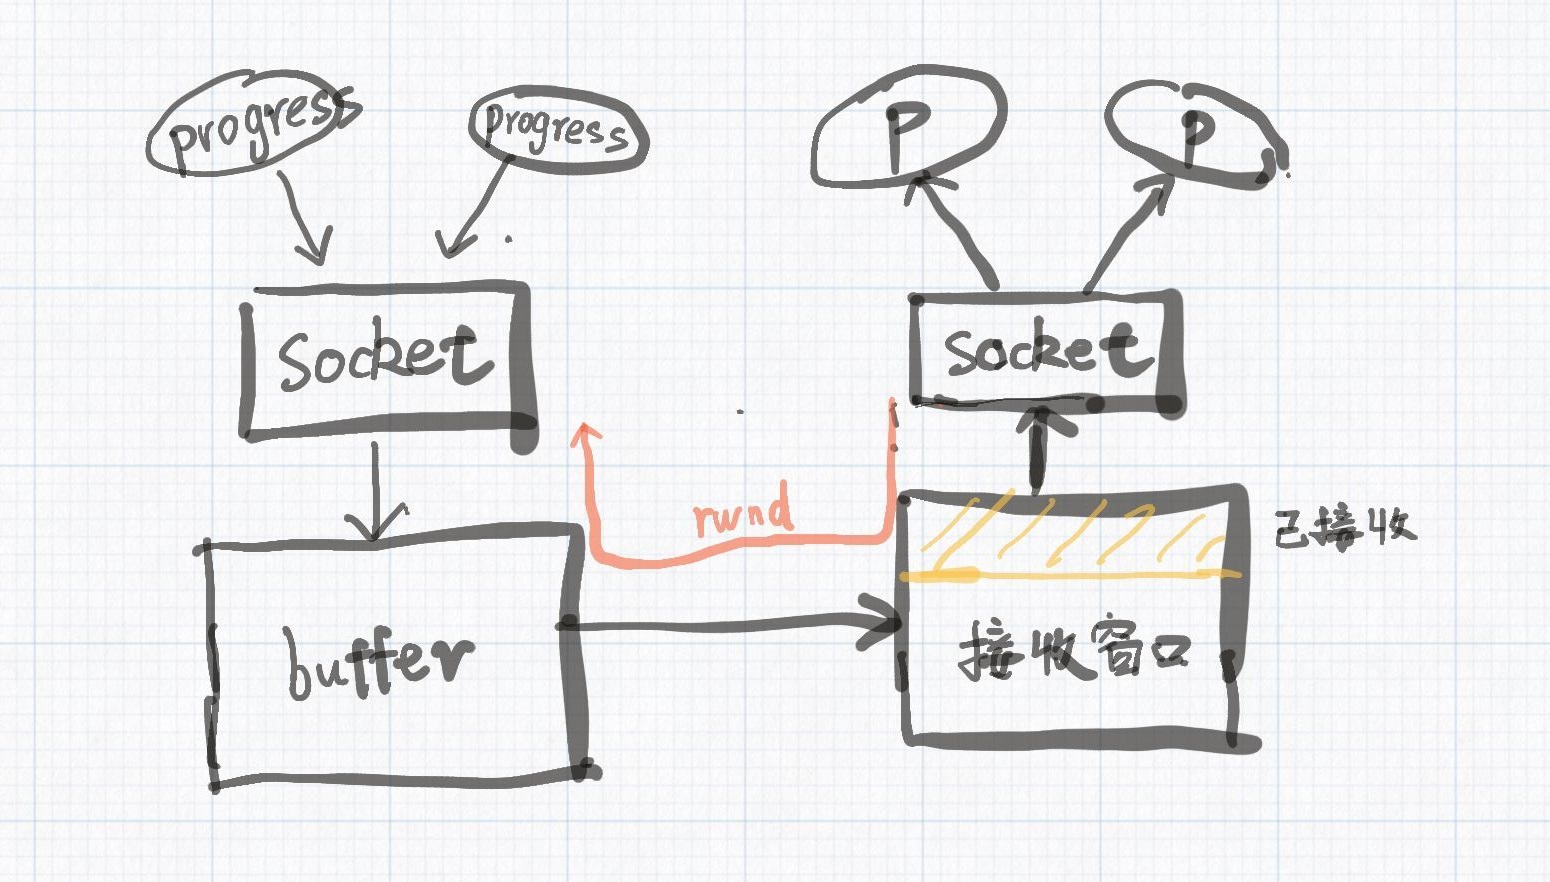 progress
progress
P
P
Socket
Socket
rwnd
已接收
buffer
接收窗口